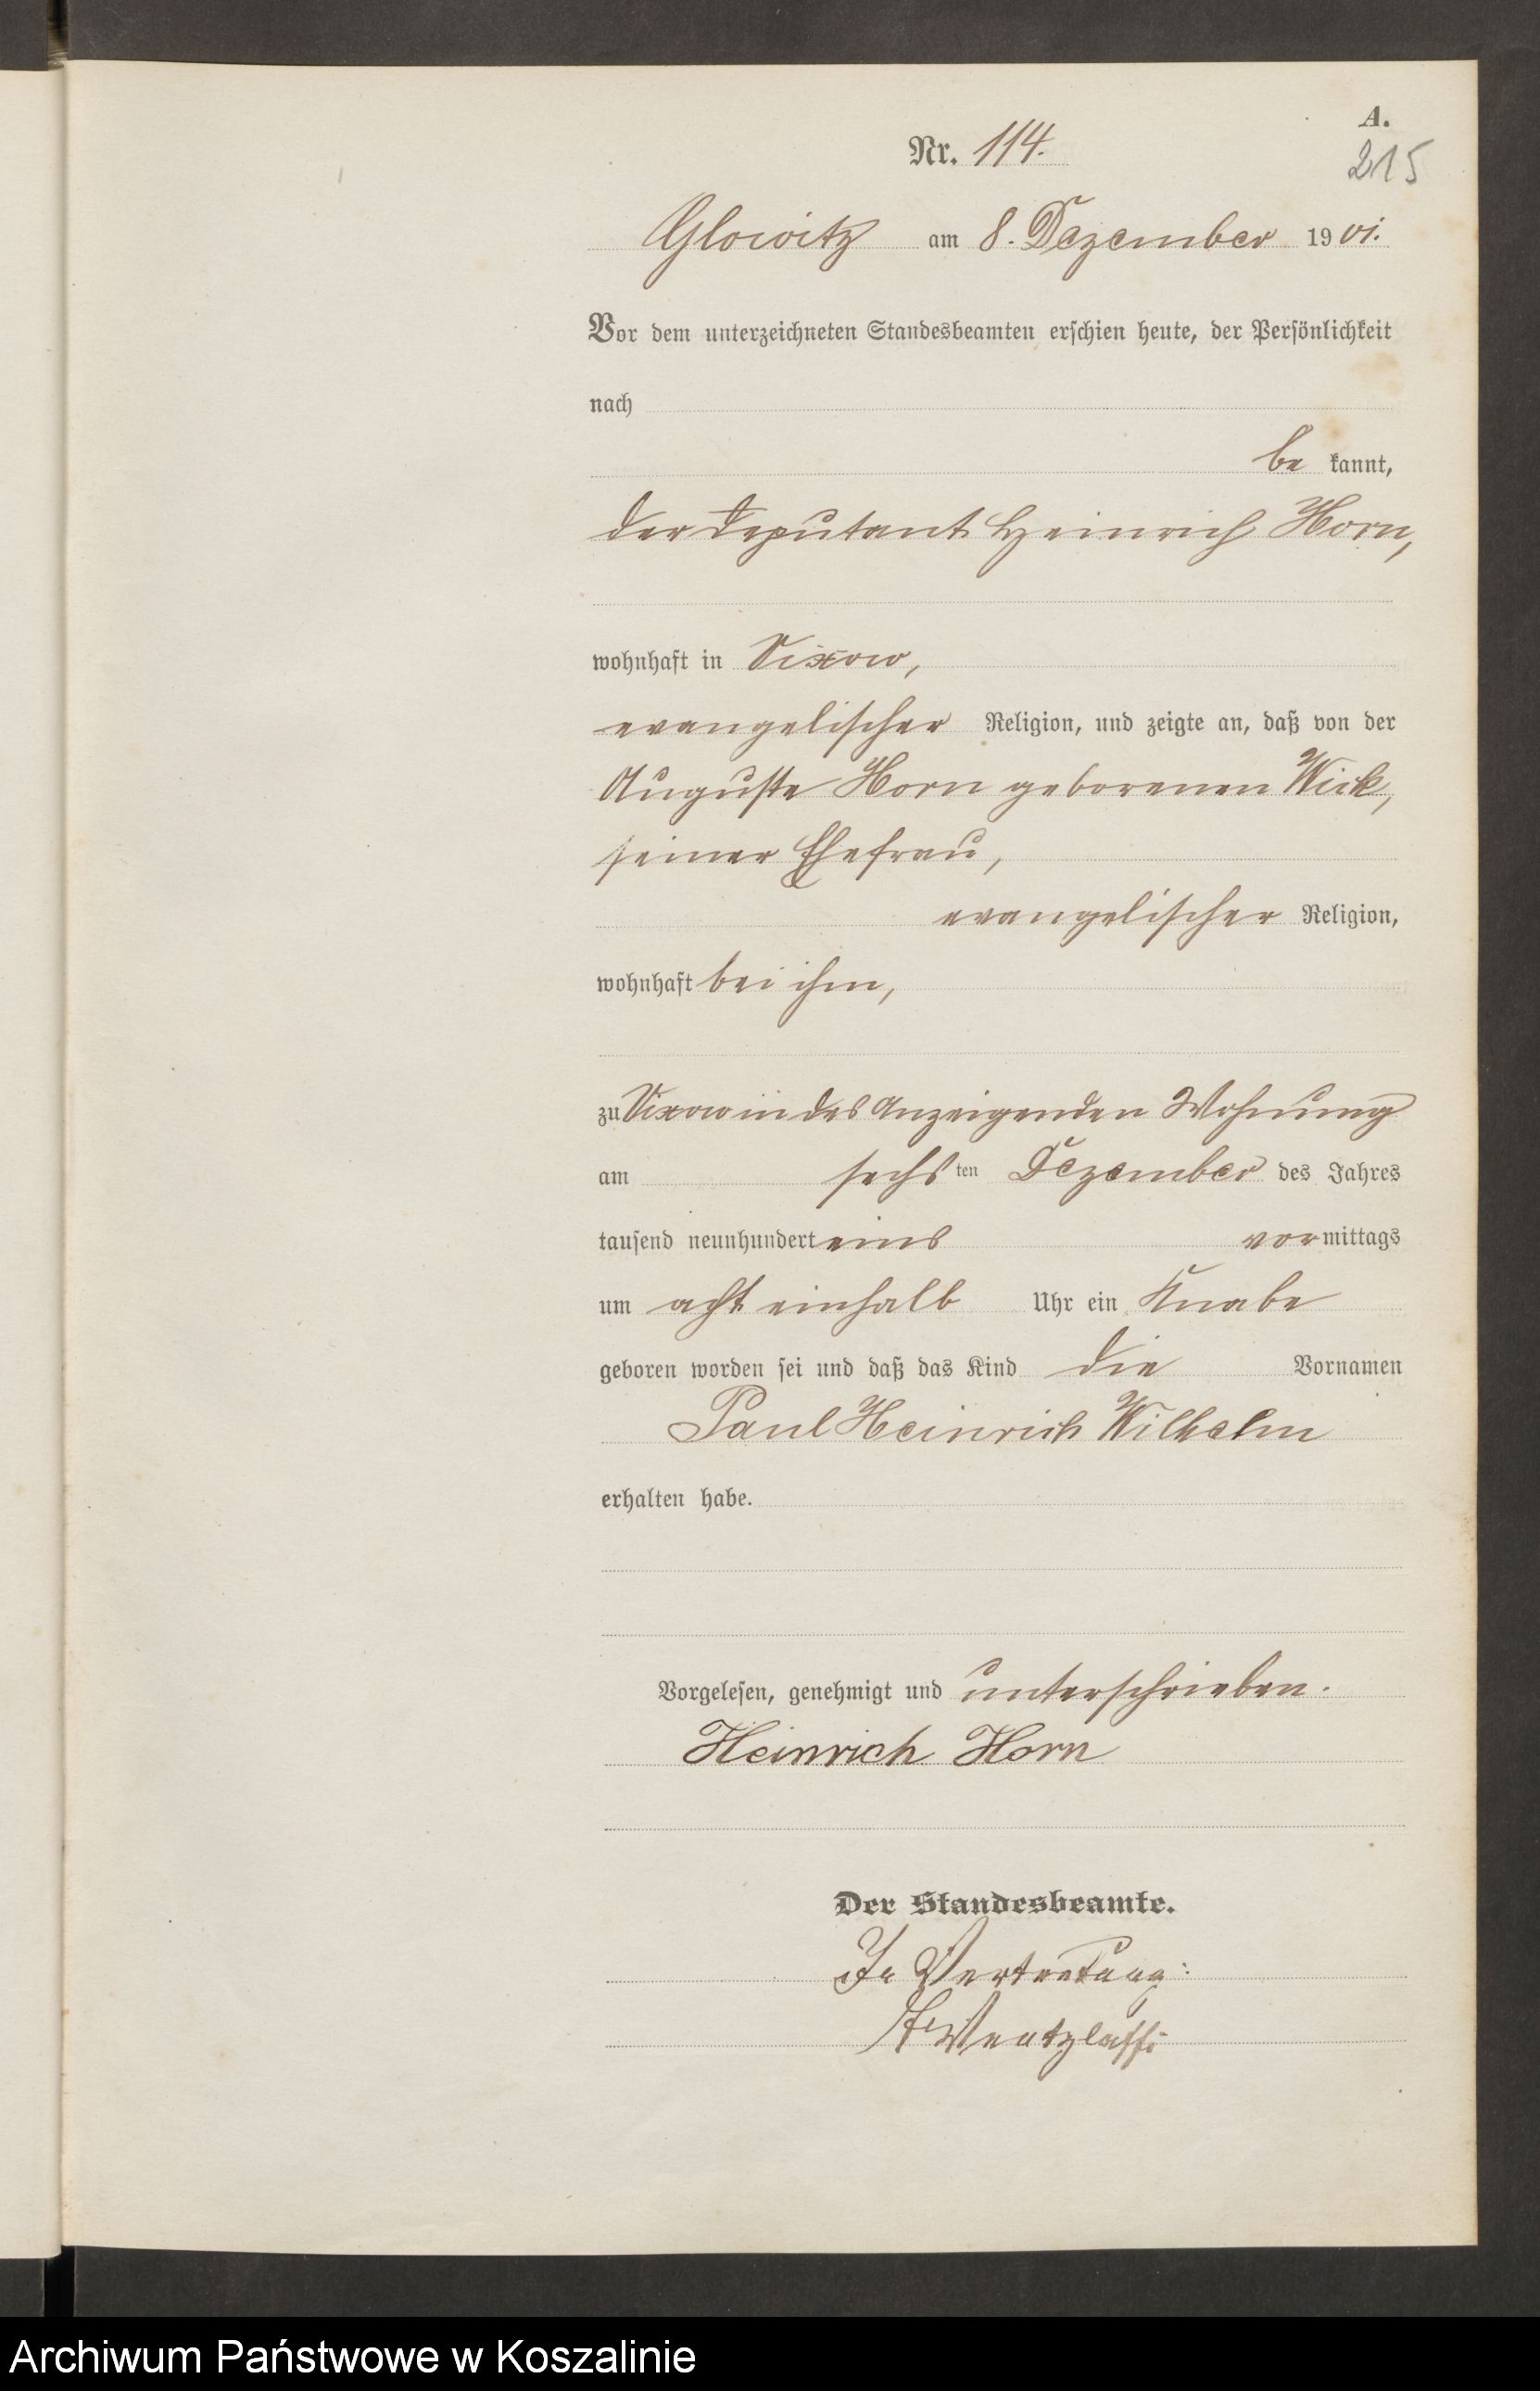 A.
Nr. 114.
215
Glowitz am 8. Dezember 1901.
Vor dem unterzeichneten Standesbeamten erschien heute, der Persönlichkeit
nach
be kannt,
der Deputant Heinrich Horn,
wohnhaft in Vixow,
evangelischer Religion, und zeigte an, daß von der
Auguste Horn geborenen Wick,
seiner Ehefrau,
evangelischer Religion,
wohnhaft bei ihm,
zu Vixow in des Anzeigenden Wohnung
am sechs ten Dezember des Jahres
tausend neunhundert eins vormittags
um acht einhalb Uhr ein Knabe
geboren worden sei und daß das Kind die Vornamen
Paul Heinrich Wilhelm
erhalten habe.
Vorgelesen, genehmigt und unterschrieben.
Heinrich Horn
Der Standesbeamte.
In Vertretung:
Wentzlaff.
Archiwum Państwowe w Koszalinie